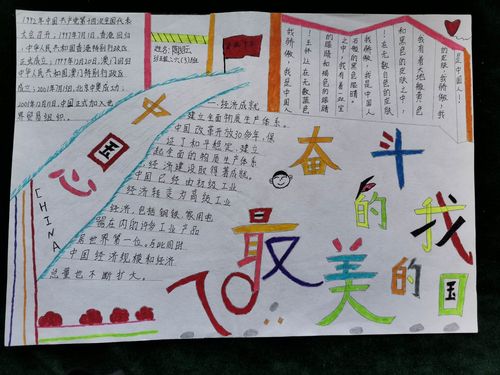 1992年中国共产党第十四次全国代表
大会召开，1997年7月1日，香港回归
，中华人民共和国香港特别行政区
正式成立；1999年12月20日，澳门回归
中华人民共和国，澳门特别行政区
成立；2001年7月13日，北京申奥成功；
2001年12月11日，中国正式加入世
界贸易组织。
姓名：
班级：六(3)班
是中国人！
的皮肤，我骄傲，我
我有着大地般黄色
和黑色的皮肤之中，
！在无数白色的皮肤
我骄傲，我是中国人
之中，我有着一双宝
的眼睛和褐色的眼睛
！王怀让在无数蓝色
我骄傲，我是中国人
中
国
心
CHINA
经济成就
建立全面物质生产体系。
中国改革开放30余年，保
证了和平稳定，建立
起全面的物质生产体系
，经济建设取得著成就。
中国已经由初级工业
经济转变为高级工业
经济，包括钢铁、家用电
器在内的许多工业产品
居世界第一位。与此同时
中国经济规模和经济
总量也不断扩大。
奋斗
的我
最美的国
70